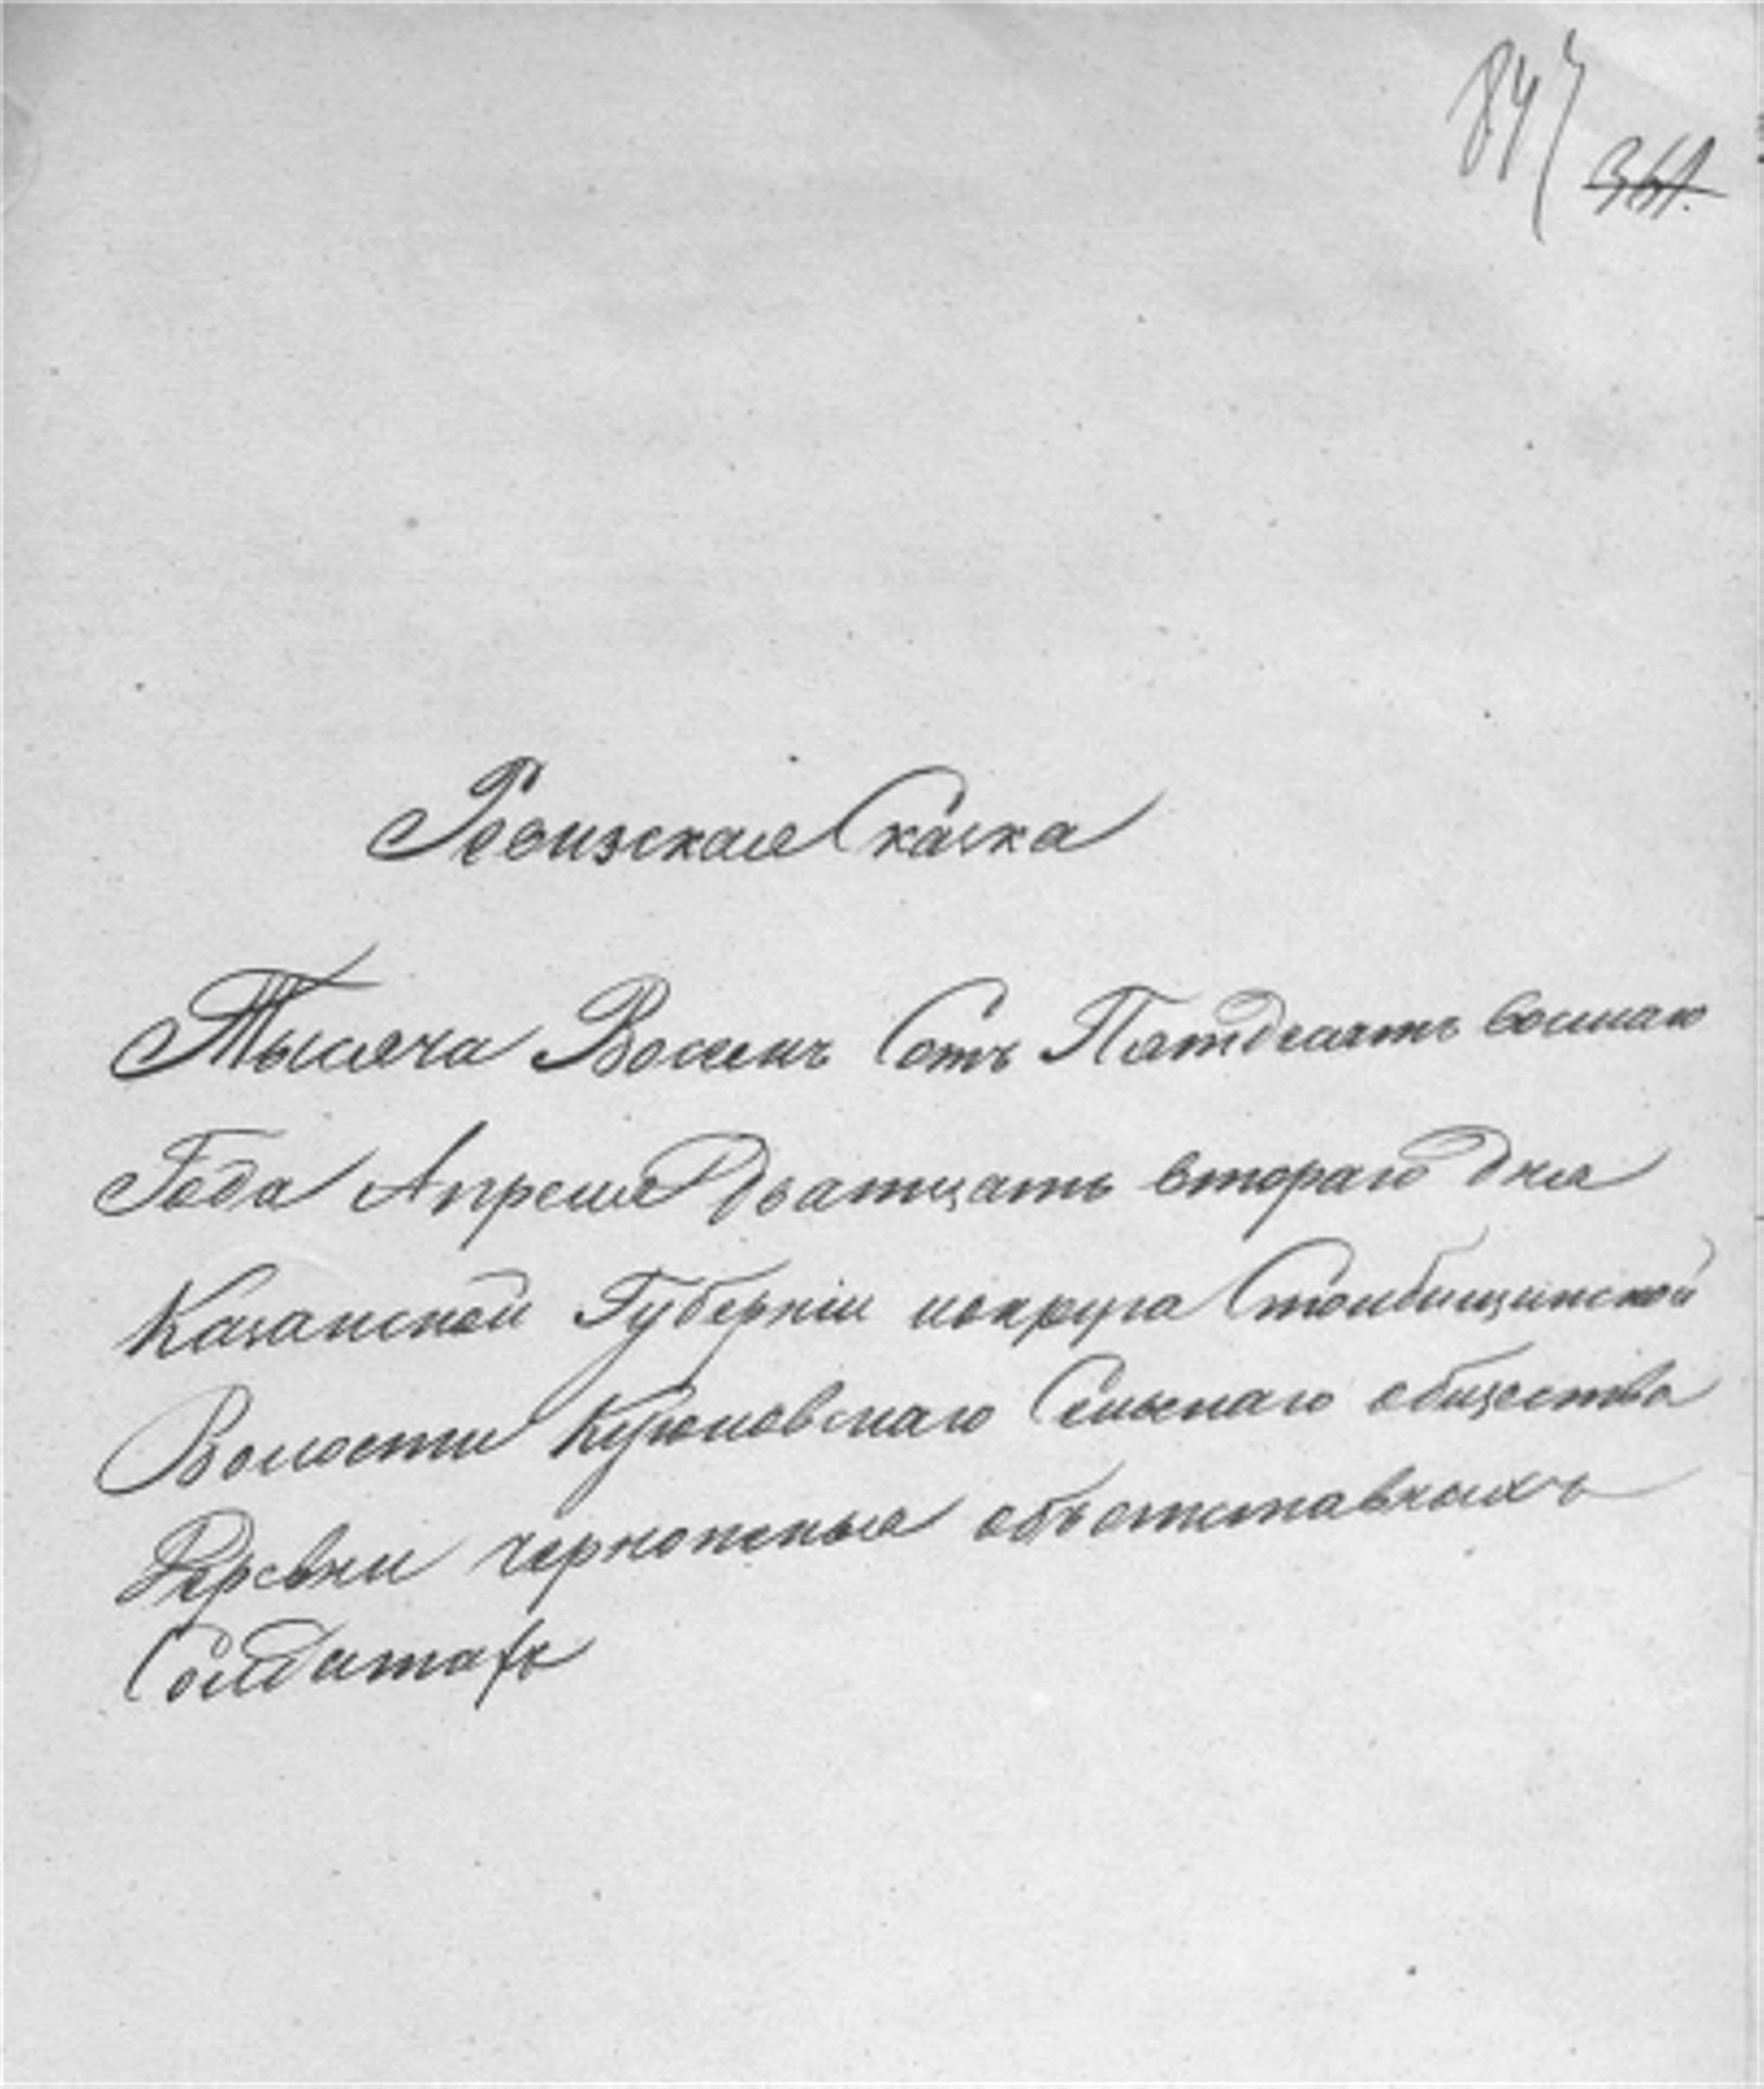 847
361.
Ревизская Скаска
Тысяча Восемь Сотъ Пятдесятъ восмаго
Года Апреля Дватцать втораго дня
Казанской Губерніи и округа Столбищинской
Волости Кусюмовскаго Сельскаго общества
Деревни чернопенья объ отставныхъ
Солдатахъ